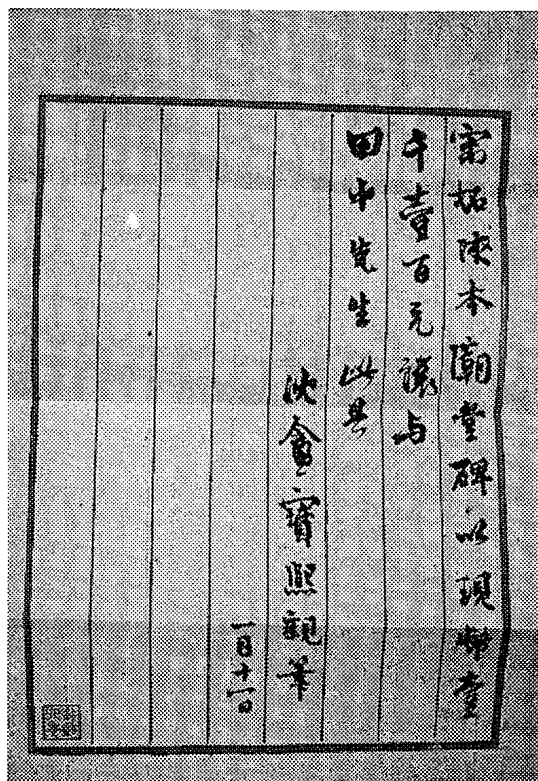 宋拓陝本廟堂碑以現幣壹
千壹百元讓与
田中先生此具
沈盦寶熙親筆
一月十一日